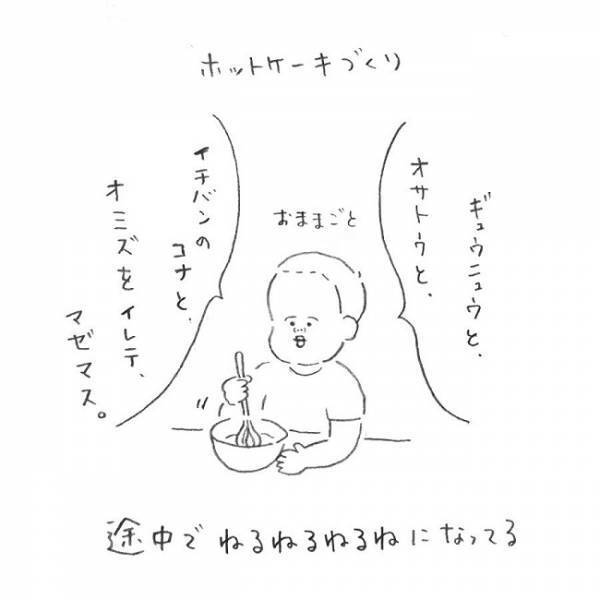 ホットケーキづくり
ギュウニュウと、
オサトウと、
おままごと
イチバンの
コナと、
オミズをイレテ、
マゼマス。
途中でねるねるねるねになってる